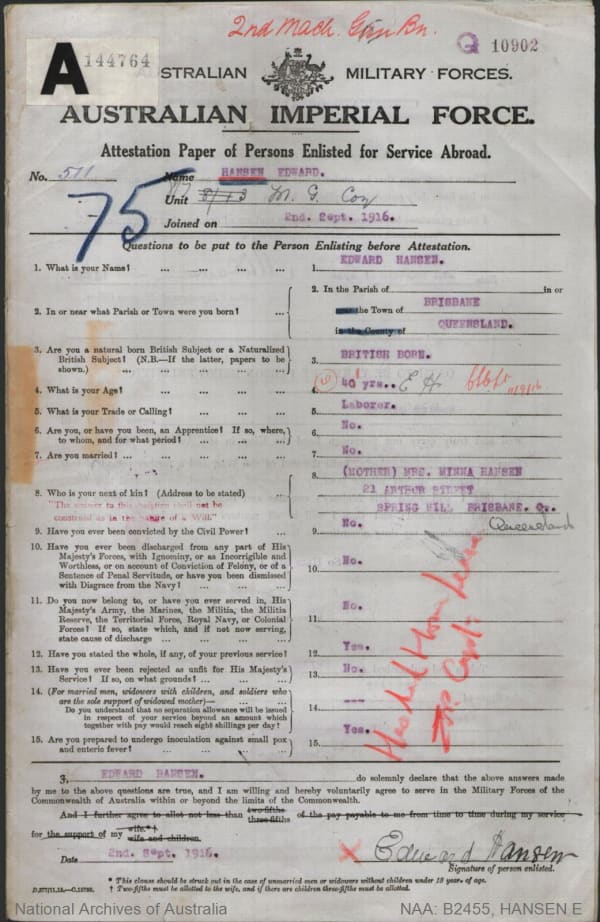 2nd Mach. Gun Bn.
A 144764
10902
AUSTRALIAN MILITARY FORCES.
AUSTRALIAN IMPERIAL FORCE.
Attestation Paper of Persons Enlisted for Service Abroad.
No. 511 Name HANSEN EDWARD.
75
Unit M. G. Coy
Joined on 2nd. Sept. 1916.
Questions to be put to the Person Enlisting before Attestation.
1. What is your Name? ... ... ... ... 1. EDWARD HANSEN.
2. In or near what Parish or Town were you born? ... 2. In the Parish of in or
near the Town of BRISBANE
in the County of QUEENSLAND.
3. Are you a natural born British Subject or a Naturalized
British Subject? (N.B.—If the latter, papers to be
shown.) ... ... ... ... 3. BRITISH BORN.
4. What is your Age? ... ... ... ... 4. 40 yrs.. E H
5. What is your Trade or Calling? ... ... ... 5. Laborer.
6. Are you, or have you been, an Apprentice? If so, where,
to whom, and for what period? ... ... ... 6. No.
7. Are you married? ... ... ... ... 7. No.
8. Who is your next of kin? (Address to be stated) ...
"The answer to this question shall not be
construed as in the nature of a Will."
8. (MOTHER) MRS. MINNA HANSEN
21 ARTHUR STREET
SPRING HILL BRISBANE. Q..
Queensland
9. Have you ever been convicted by the Civil Power? ... 9. No.
10. Have you ever been discharged from any part of His
Majesty's Forces, with Ignominy, or as Incorrigible and
Worthless, or on account of Conviction of Felony, or of a
Sentence of Penal Servitude, or have you been dismissed
with Disgrace from the Navy? ... ... ... 10. No.
11. Do you now belong to, or have you ever served in, His
Majesty's Army, the Marines, the Militia, the Militia
Reserve, the Territorial Force, Royal Navy, or Colonial
Forces? If so, state which, and if not now serving,
state cause of discharge ... ... ... ... 11. No.
12. Have you stated the whole, if any, of your previous service? 12. Yes.
13. Have you ever been rejected as unfit for His Majesty's
Service? If so, on what grounds? ... ... ... 13. No.
14. (For married men, widowers with children, and soldiers who
are the sole support of widowed mother)—
Do you understand that no separation allowance will be issued
in respect of your service beyond an amount which
together with pay would reach eight shillings per day? 14. ---
15. Are you prepared to undergo inoculation against small pox
and enteric fever? ... ... ... ... 15. Yes.
Capt.
I, EDWARD HANSEN. do solemnly declare that the above answers made
by me to the above questions are true, and I am willing and hereby voluntarily agree to serve in the Military Forces of the
Commonwealth of Australia within or beyond the limits of the Commonwealth.
And I further agree to allot not less than two-fifths three-fifths of the pay payable to me from time to time during my service
for the support of my wife.*† wife and children.
Date 2nd. Sept. 1916. X Edward Hansen
Signature of person enlisted.
* This clause should be struck out in the case of unmarried men or widowers without children under 18 years of age.
† Two-fifths must be allotted to the wife, and if there are children three-fifths must be allotted.
National Archives of Australia NAA: B2455, HANSEN E